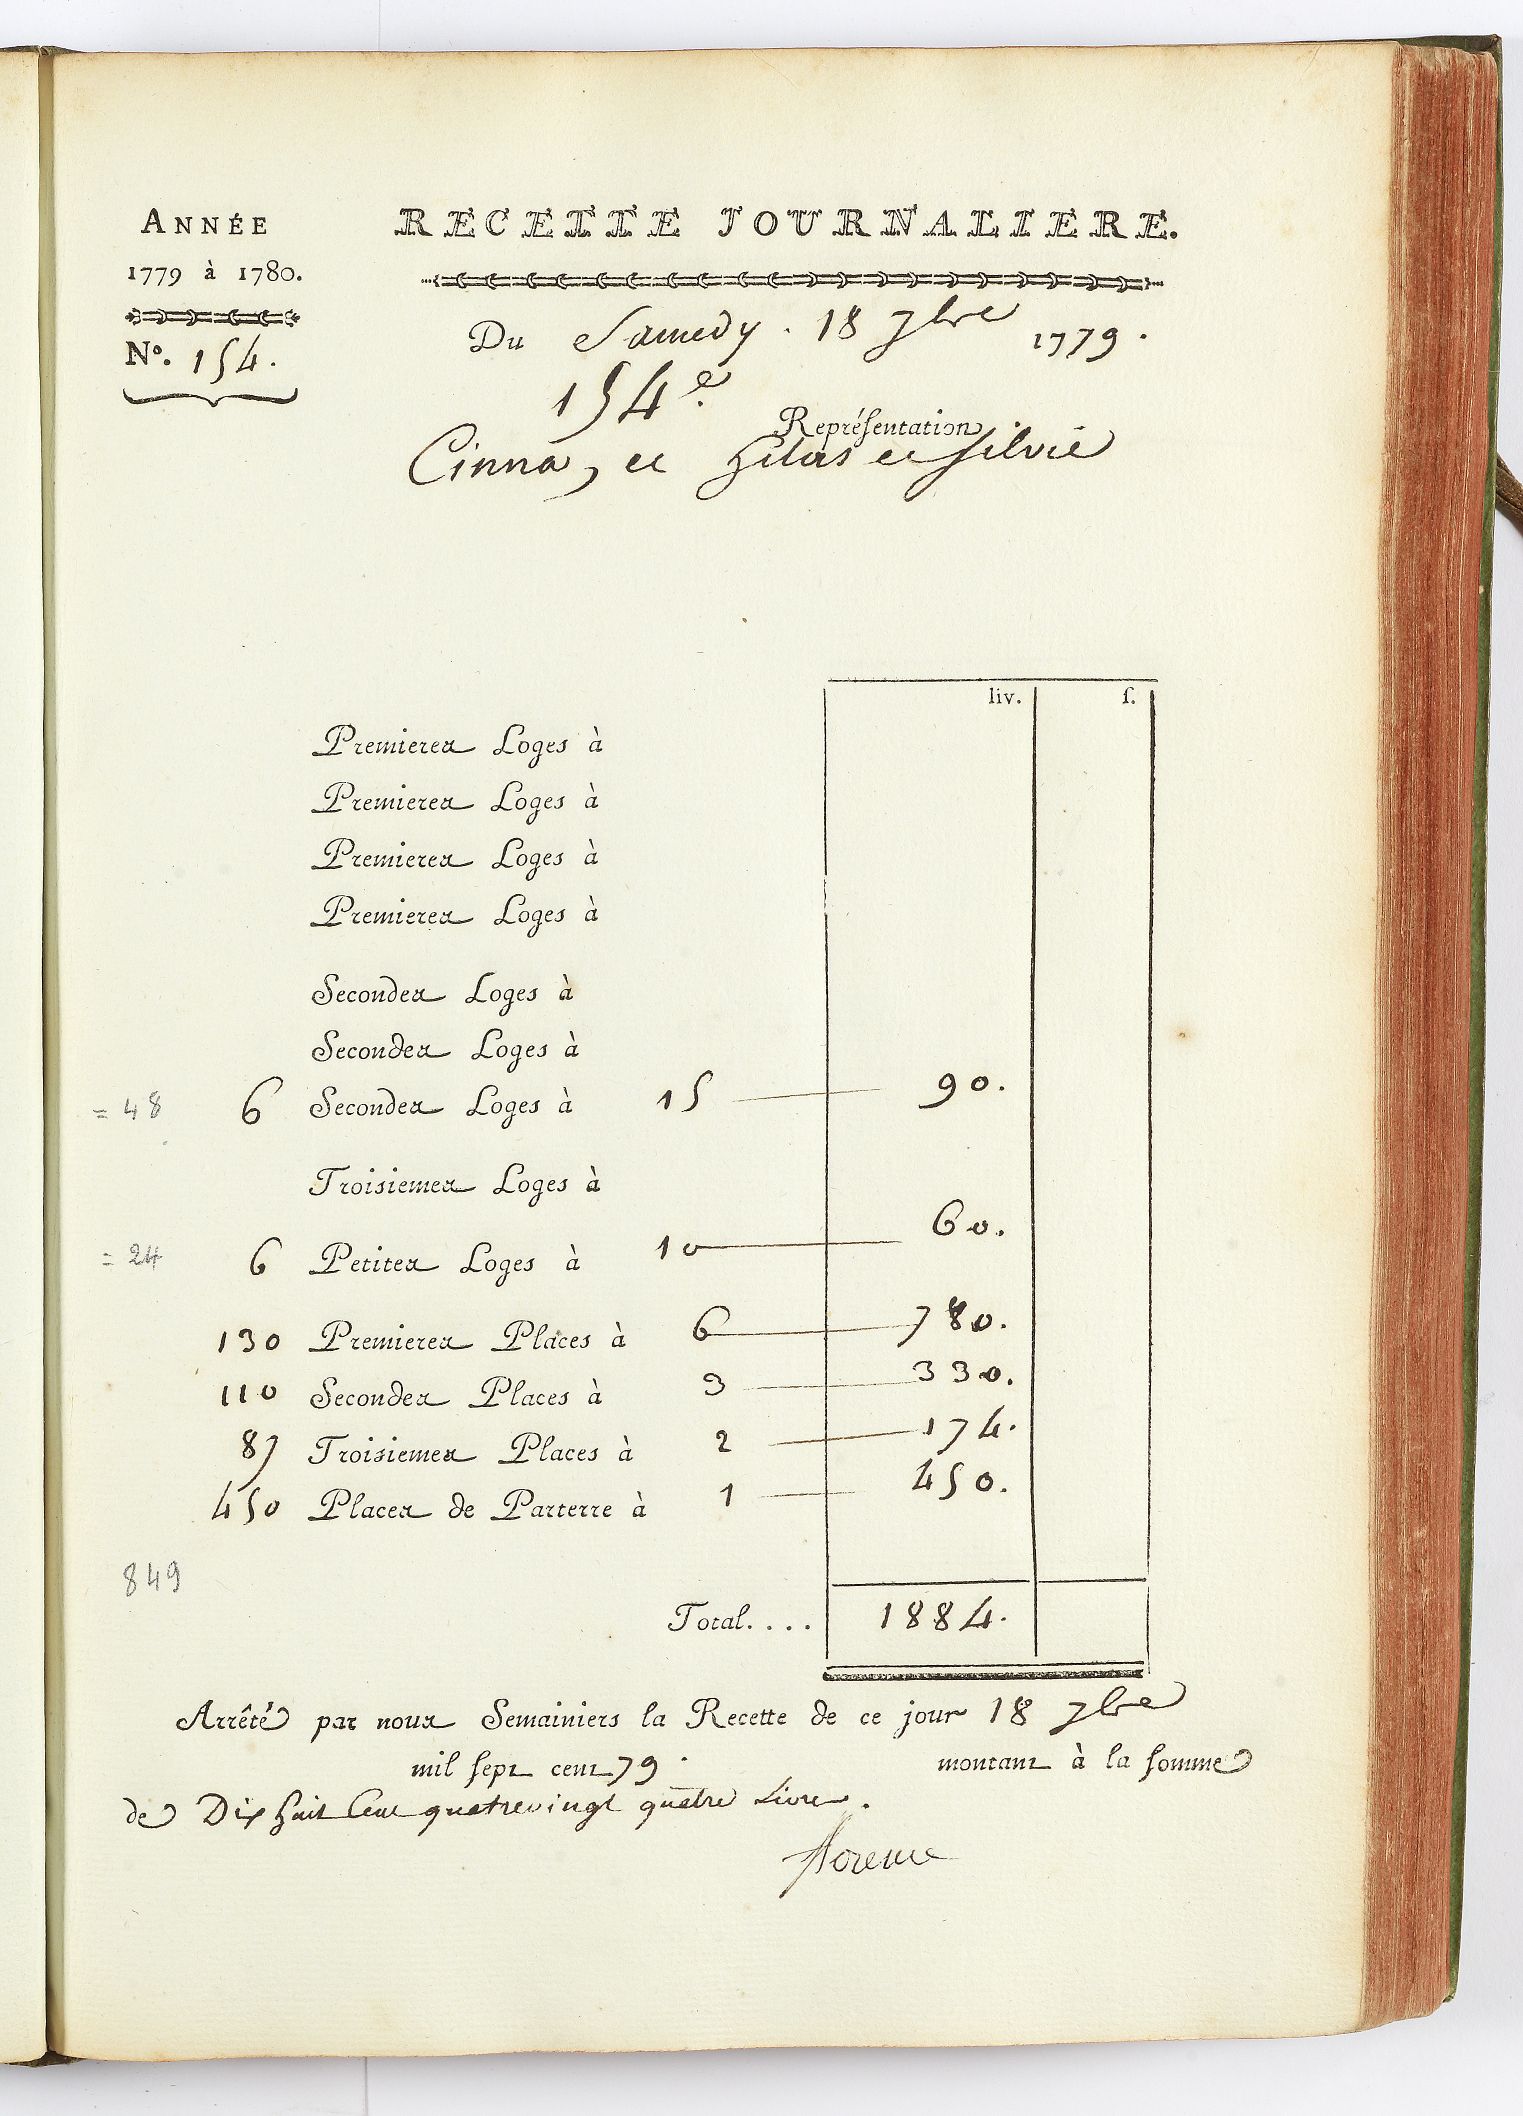 ANNÉE
1779 à 1780.
No. 154.
RECETTE JOURNALIERE.
Du Samedy. 18 7bre 1779.
154e. Représentation
Cinna, et hilas et silvie
liv. ſ.
Premieres Loges à
Premieres Loges à
Premieres Loges à
Premieres Loges à
Secondes Loges à
Secondes Loges à
= 48 6 Secondes Loges à 15 90.
Troisiemes Loges à
= 24 6 Petites Loges à 10 60.
130 Premieres Places à 6 780.
110 Secondes Places à 3 330.
87 Troisiemes Places à 2 174.
450 Places de Parterre à 1 450.
849
Total.... 1884.
Arrêté par nous Semainiers la Recette de ce jour 18 7bre
mil ſept cent 79. montant à la ſomme
de Dix huit Cent quatrevingt quatre Livre.
florence